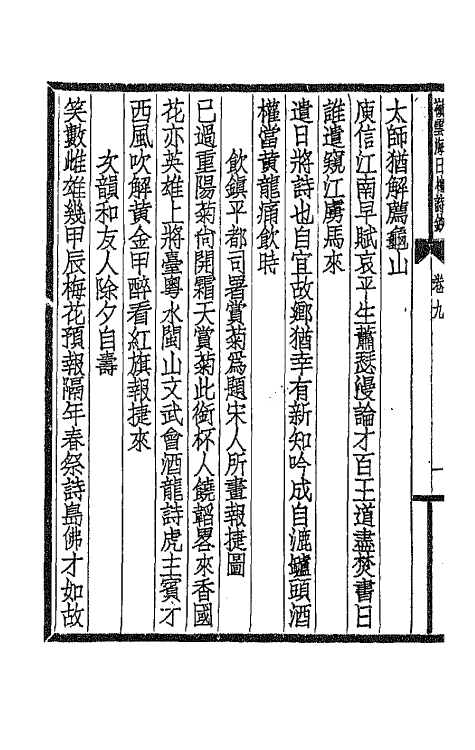 嶺雲海日樓詩鈔 卷九 一
太師猶解薦龜山
庾信江南早賦哀平生蕭瑟漫論才百王道盡焚書日
誰遣窺江虜馬來
遣日將詩也自宜故鄉猶幸有新知吟成自漉壚頭酒
權當黃龍痛飲時
飲鎮平都司署賞菊爲題宋人所畫報捷圖
已過重陽菊尙開霜天賞菊此銜杯人饒韜畧來香國
花亦英雄上將臺粵水閩山文武會酒龍詩虎主賓才
西風吹解黃金甲醉看紅旗報捷來
次韻和友人除夕自壽
笑數雌雄幾甲辰梅花預報隔年春祭詩島佛才如故